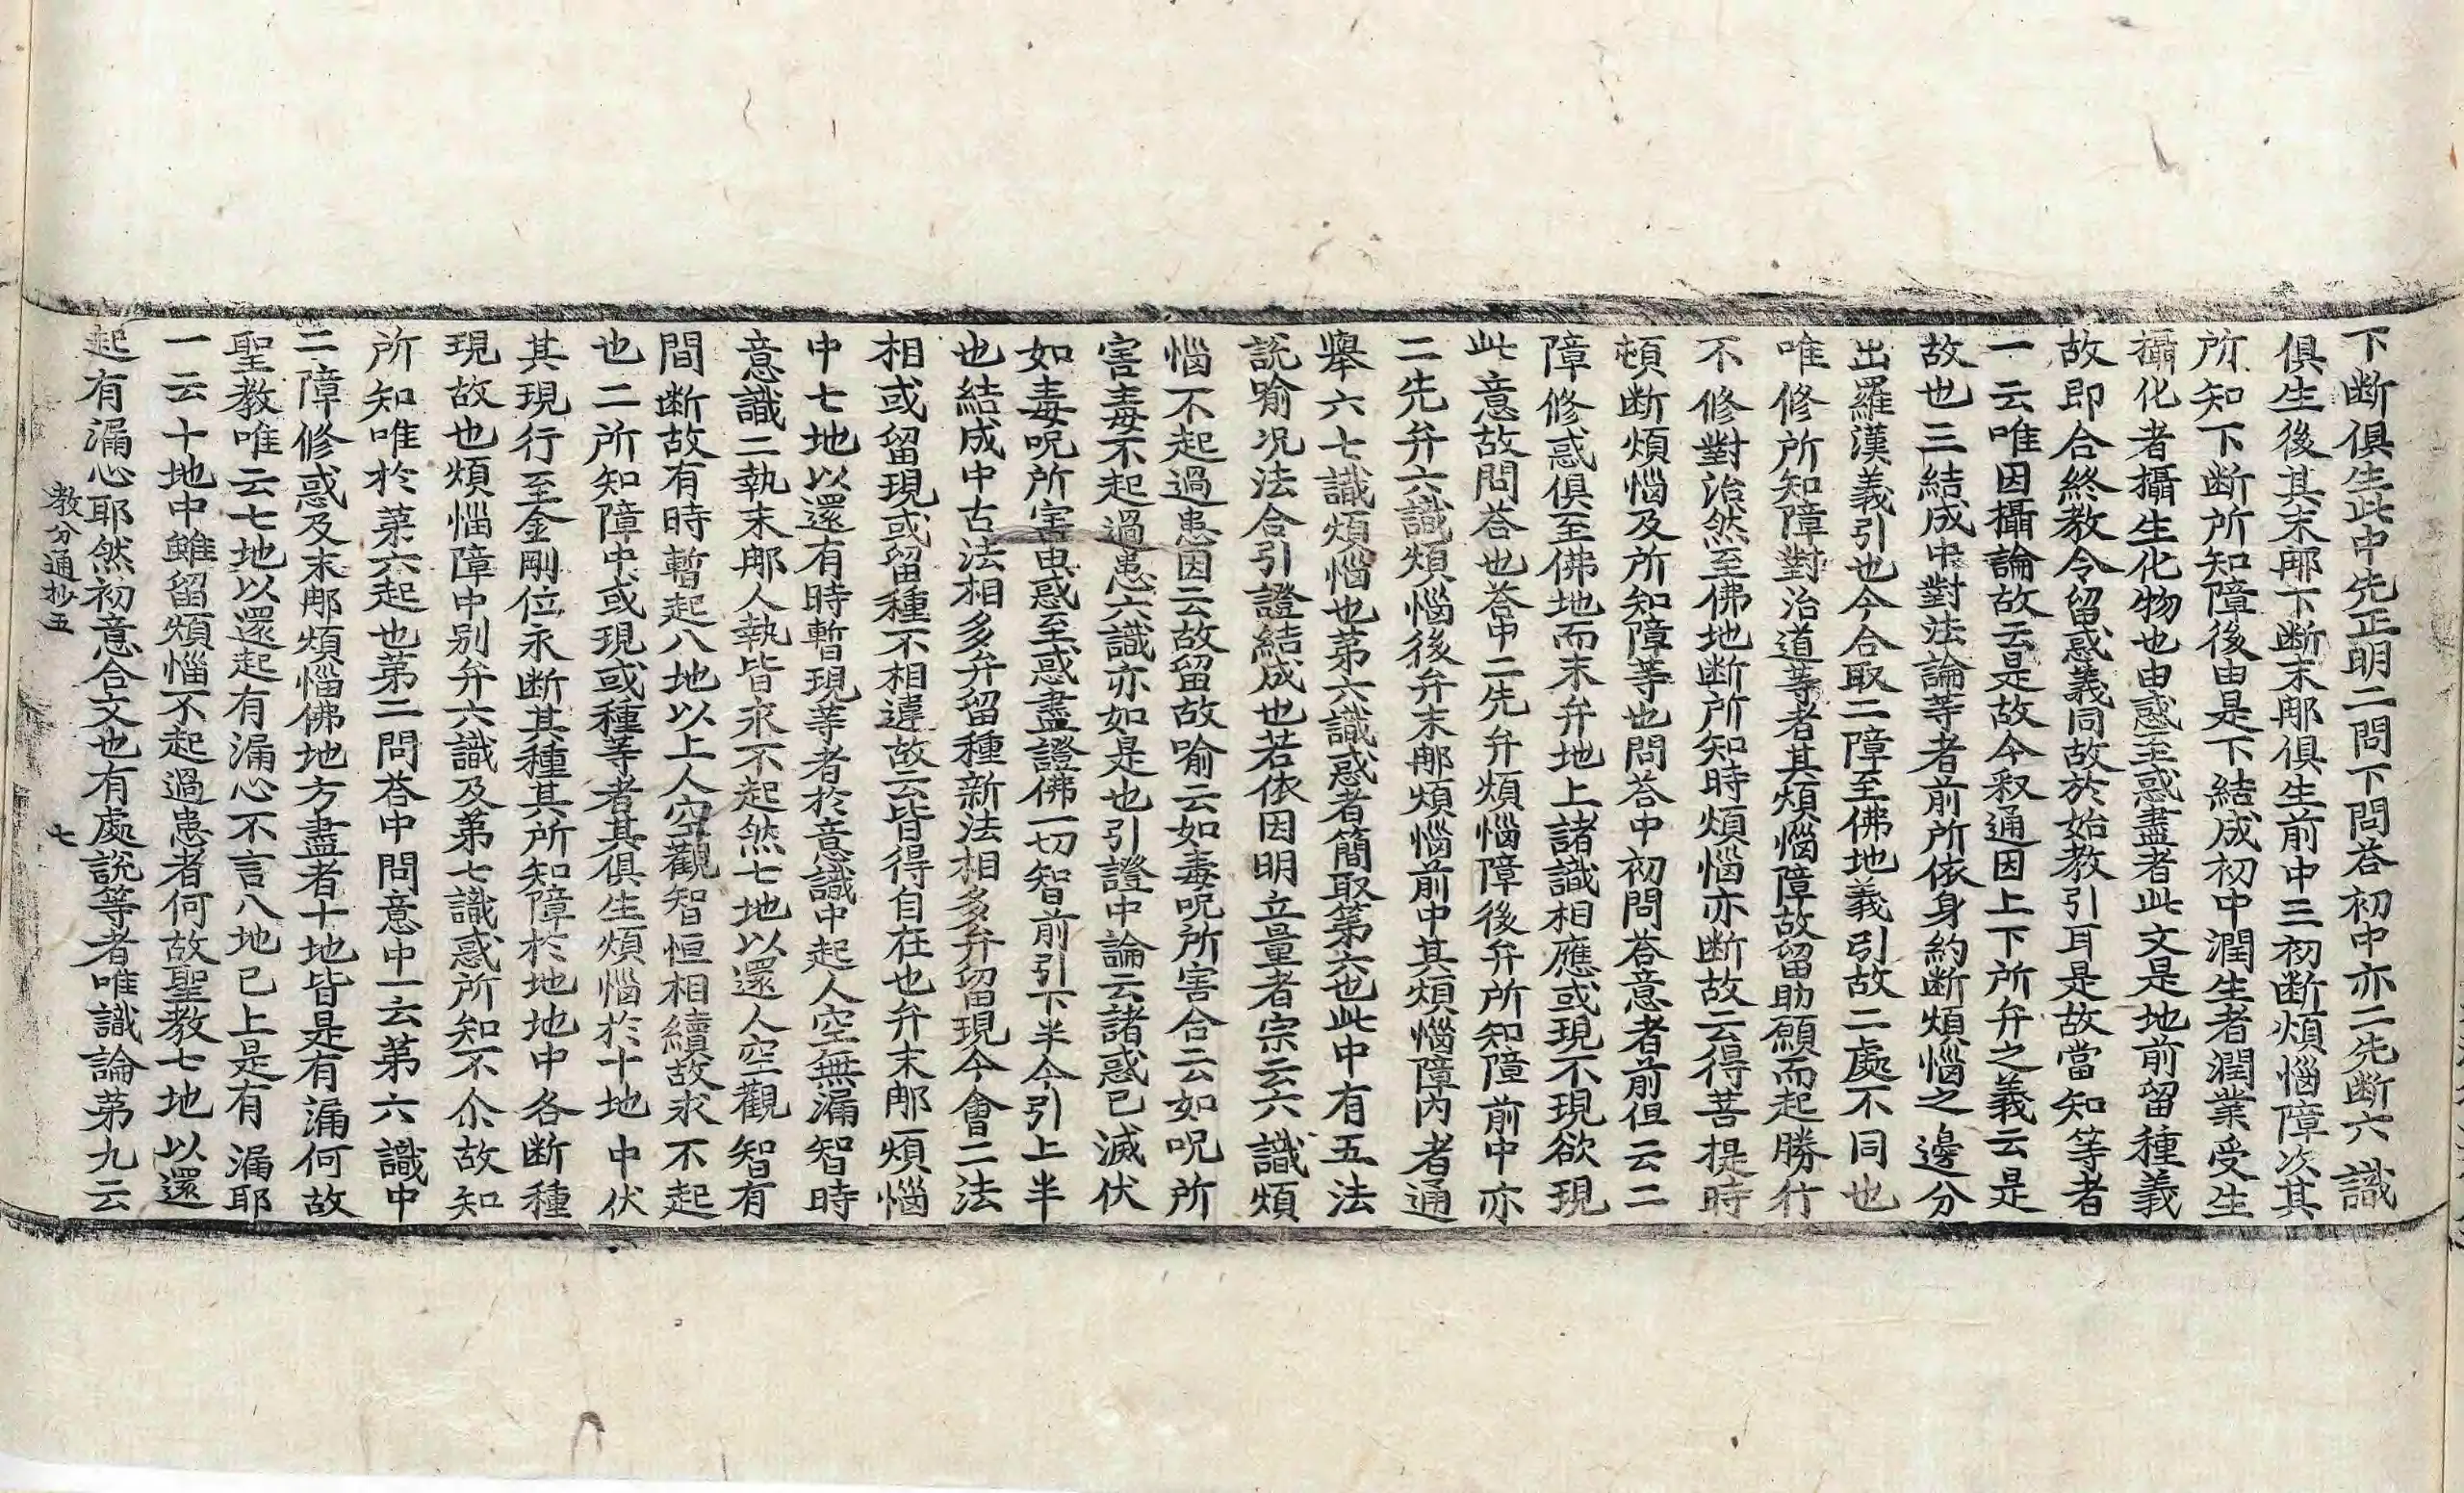 下断俱生此中先正明二問下問荅初中亦二先断六識
俱生後其末那下断末那俱生前中三初断煩惱障次其
所知下断所知障後由是下結成初中潤生者潤業受生
攝化者攝生化物也由惑至惑盡者此文是地前留種義
故即合終教令留惑義同故於始教引耳是故當知等者
一云唯因攝論故云是故今釈通因上下所弁之義云是
故也三結成中對法論等者前所依身約断煩惱之邊分
出羅漢義引也今合取二障至佛地義引故二處不同也
唯修所知障對治道等者其煩惱障故留助願而起勝行
不修對治然至佛地断所知時煩惱亦断故云得菩提時
頓断煩惱及所知障等也問荅中初問荅意者前但云二
障修惑俱至佛地而未弁地上諸識相應或現不現欲現
此意故問荅也荅中二先弁煩惱障後弁所知障前中亦
二先弁六識煩惱後弁末那煩惱前中其煩惱障內者通
擧六七識煩惱也第六識惑者簡取第六也此中有五法
說喻况法合引證結成也若依因明立量者宗云六識煩
惱不起過患因云故留故喻云如毒呪所害合云如呪所
害毒不起過患六識亦如是也引證中論云諸惑已滅伏
如毒呪所害由惑至惑盡證佛一切智前引下半今引上半
也結成中古法相多弁留種新法相多弁留現今會二法
相或留現或留種不相違故云皆得自在也弁末那煩惱
中七地以還有時暫現等者於意識中起人空無漏智時
意識二執末那人執皆永不起然七地以還人空觀智有
間断故有時暫起八地以上人空觀智恒相續故永不起
也二所知障中或現或種等者其俱生煩惱於十地中伏
其現行至金剛位永断其種其所知障於地地中各断種
現故也煩惱障中别弁六識及第七識惑所知不尒故知
所知唯於第六起也第二問荅中問意中一云第六識中
二障修惑及末那煩惱佛地方盡者十地皆是有漏何故
聖教唯云七地以還起有漏心不言八地已上是有漏耶
一云十地中雖留煩惱不起過患者何故聖教七地以還
起有漏心耶然初意合文也有處說等者唯識論第九云
教分通抄五 七